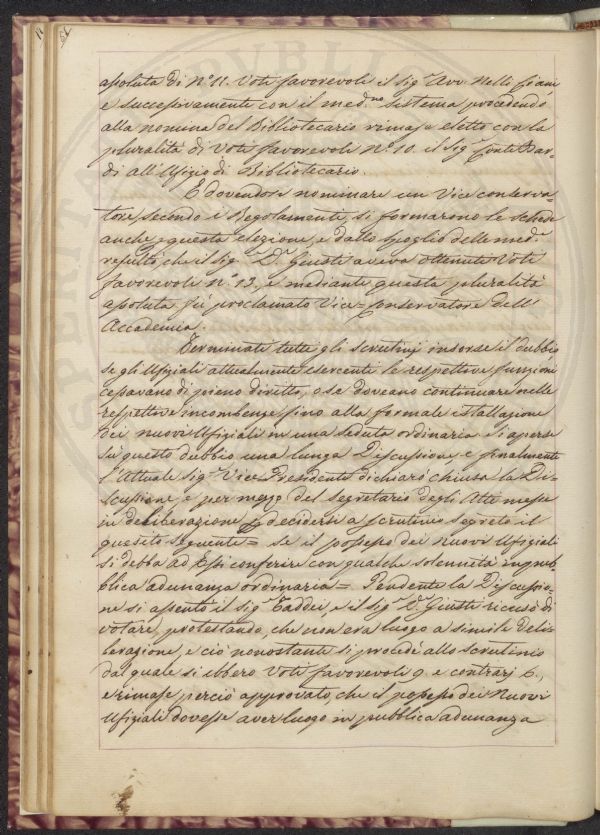 assoluta di N.° 11. Voti favorevole il Sig.r Avv. Nelli
e successivamente con il med.mo sistema procedendo
alla nomina del Bibliotecario rimase eletto con la
pluralità di Voti favorevoli N.° 10. il Sig.r Conte Bar=
di all'Ufizio di Bibliotecario.
E dovendosi nominare un Vice conserva=
tore, secondo i Regolamenti, si formarono le schede
anche questa elezione, e dallo spoglio delle med.e
resultò che il Sig.r D.r Giusti aveva ottenuti Voti
favorevoli n.° 13., e mediante questa pluralità
assoluta fù proclamato Vice=Conservatore dell'
Accademia.
Terminati tutti gli scrutinj insorse il dubbio
se gli Ufiziali attualmente esercenti le respettive funzioni
cessavano di pieno diritto, o se doveano continuare nelle
respettive incombenze fino alla formale istallazione
dei nuovi Ufiziali in una seduta ordinaria. Si aperse
su questo dubbio una lunga Discussione e finalmente
l'Attuale Sig.r Vice=Presidente dichiarò chiusa la Di=
scussione, e per mezzo del Segretario degli Atti messe
in deliberazione decidersi a scrutinio segreto il
quesito seguente = Se il possesso dei nuovi Ufiziali
si debba ad Essi conferire con qualche solennità in pub=
blica adunanza ordinaria = Pendente la Discussio=
ne si assentò il Sig.r Taddei, e il Sig.r D.r Giusti ricusò di
votare, protestando, che non era luogo a simile deli=
berazione, e ciò nonostante si procedè allo scrutinio
dal quale si ebbero Voti favorevoli 9. e contrarj 6.,
e rimase perciò approvato, che il possesso dei Nuovi
Ufiziali dovesse aver luogo in pubblica adunanza